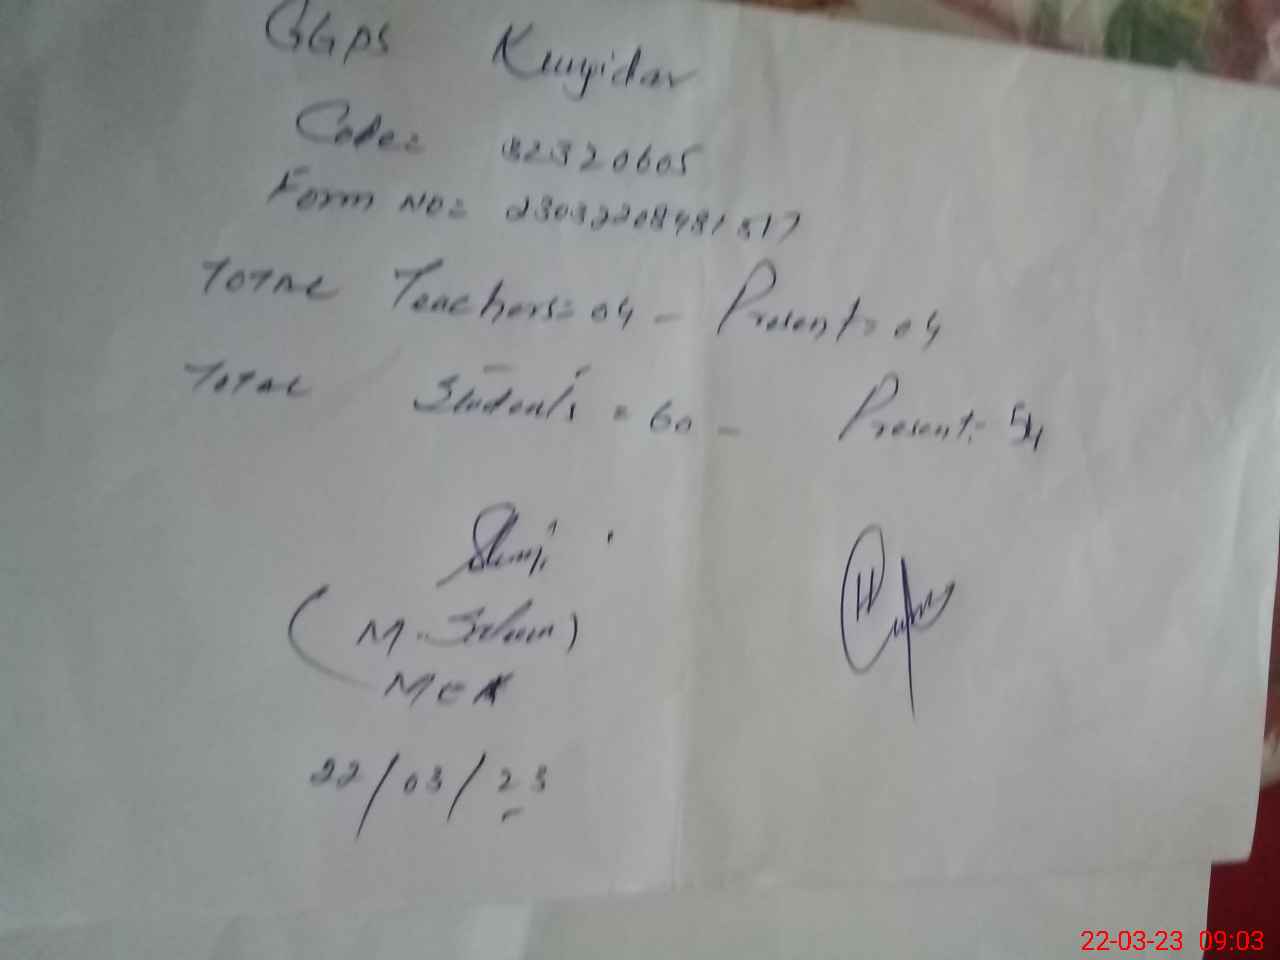 GGPS Kuyidar
Code= 32320605
Form NO= 23032208481517
TOTAL Teachers= 04 - Present= 04
TOTAL Students = 60 - Present= 54
(M. Saleem)
MEA
22/03/23
22-03-23 09:03